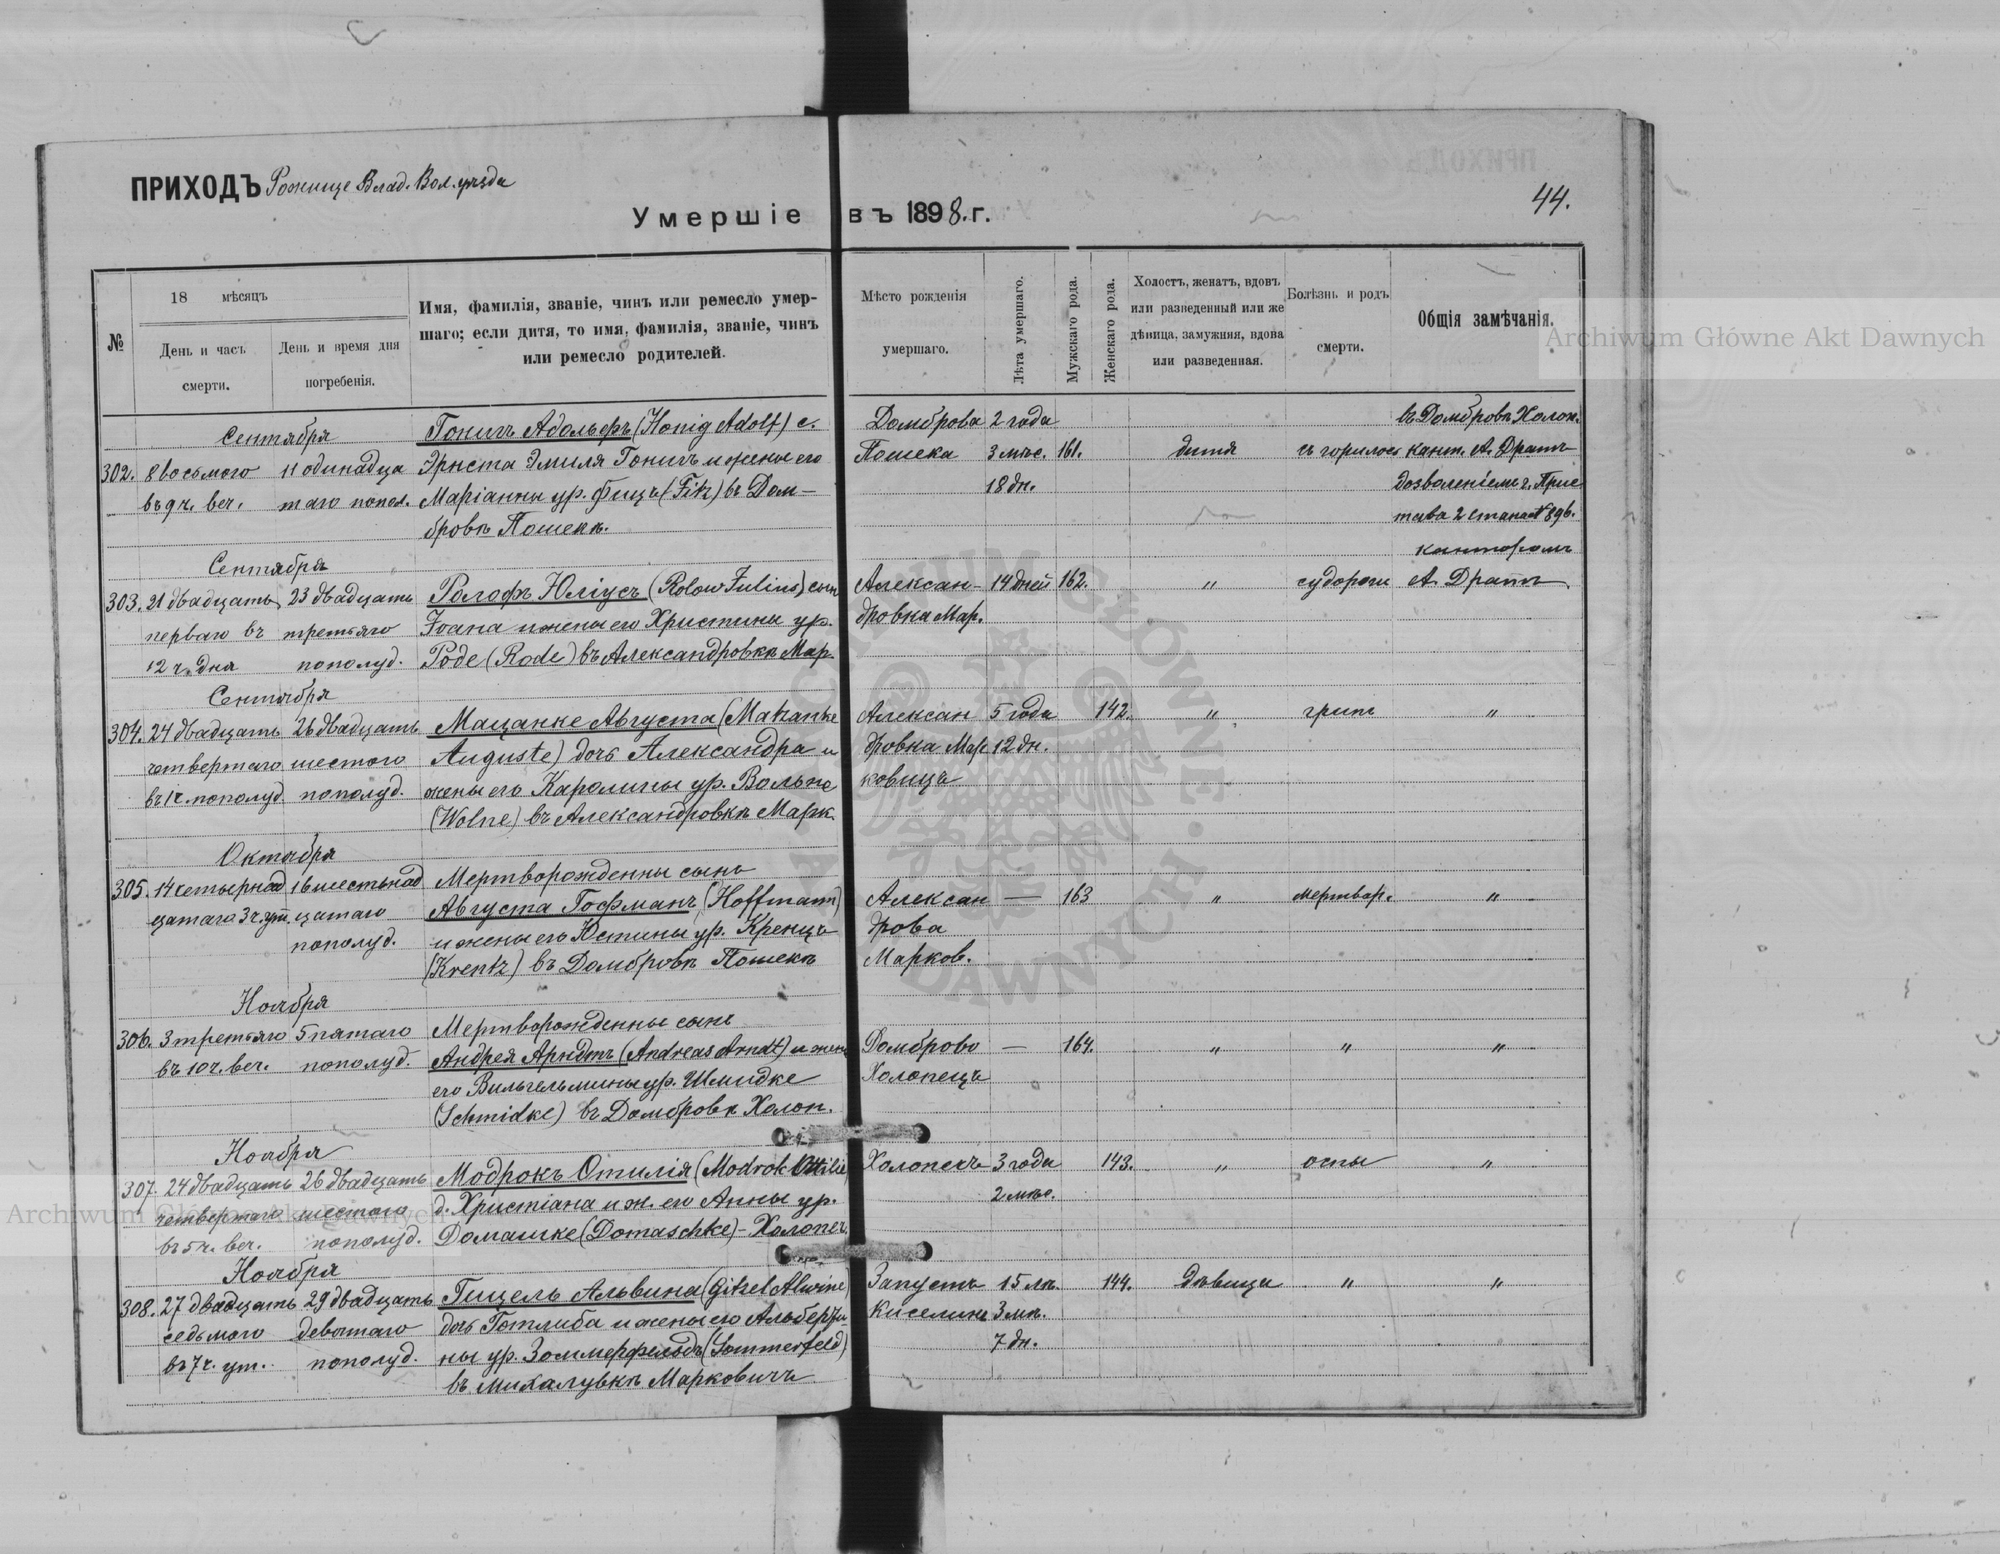 ПРИХОДЪ Рожище Влад. Вол. уѣзда
44.
Умершіе въ 1898. г.
№
18 мѣсяцъ
День и часъ смерти.
День и время дня погребенія.
Имя, фамилія, званіе, чинъ или ремесло умер-
шаго; если дитя, то имя, фамилія, званіе, чинъ
или ремесло родителей.
Мѣсто рожденія
умершаго.
Лѣта умершаго.
Мужскаго рода.
Женскаго рода.
Холостъ, женатъ, вдовъ
или разведенный или же
дѣвица, замужняя, вдова
или разведенная.
Болѣзнь и родъ
смерти.
Общія замѣчанія.
Archiwum Główne Akt Dawnych
Сентября Гонигъ Адольфъ (Honig Adolf) с. Домброва 2 года въ Домбровѣ Холоп.
302. 8 восьмого 11 одинадца Эрнста Эмиля Гонигъ и жены его Пошека 3 мѣс. 161. дитя сгорилось кант. А. Драгъ
въ 9 ч. веч. таго попол. Маріанны ур. Фицъ (Fitz) въ Дом- 18 дн. дозволеніем г. Прис
бровѣ Пошекѣ. тава 2 стана № 896.
Сентября канторомъ
303. 21 двадцать 23 двадцать Ролофъ Юліусъ (Rolow Julius) сын Алексан- 14 дней 162. " судороги А. Драгъ
перваго въ третьяго Іоана и жены его Христины ур. дровка Мар.
12 ч. дня пополуд. Роде (Rode) въ Александровкѣ Мар.
Сентября
304. 24 двадцать 26 двадцать Мацанке Августа (Matzanke Алексан 5 года 142. " грипъ "
четвертаго шестого Auguste) дочь Александра и дровка Мар 12 дн.
въ 1 ч. пополуд. пополуд. жены его Каролины ур. Вольне ковицъ
(Wolne) въ Александровкѣ Марк.
Октября
305. 14 четырнад 16 шестьнад Мертворожденны сынъ
цатаго 3 ч. ут. цатаго Августа Гофманъ (Hoffmann) Алексан — 163 " мертвор. "
пополуд. и жены его Юстины ур. Кренцъ дрова
(Krentz) въ Домбровѣ Пошекѣ Марков.
Ноября
306. 3 третьяго 5 пятаго Мертворожденны сынъ
въ 10 ч. веч. пополуд. Андрея Арндтъ (Andreas Arndt) и жены Домброво — 164. " " "
его Вильгельмины ур. Шмидке Холопецъ
(Schmidke) въ Домбровѣ Холоп.
Ноября
307. 24 двадцать 26 двадцать Модрокъ Отилія (Modrok Ottilie) Холопечъ 3 года 143. " оспы "
четвертаго шестого д. Христіана и ж. его Анны ур. 2 мѣс.
въ 5 ч. веч. пополуд. Домашке (Domaschke) - Холопеч.
Archiwum Główne Akt Dawnych
Ноября
308. 27 двадцать 29 двадцать Гицель Альвина (Gitzel Alwine) Запустъ 15 лѣ. 144. дѣвица " "
седьмого девятаго дочь Готлиба и жены его Альберти- Киселинъ 3 мѣ.
въ 7 ч. ут. пополуд. ны ур. Зоммерфельдъ (Sommerfeld) 7 дн.
въ Михалувкѣ Марковичъ